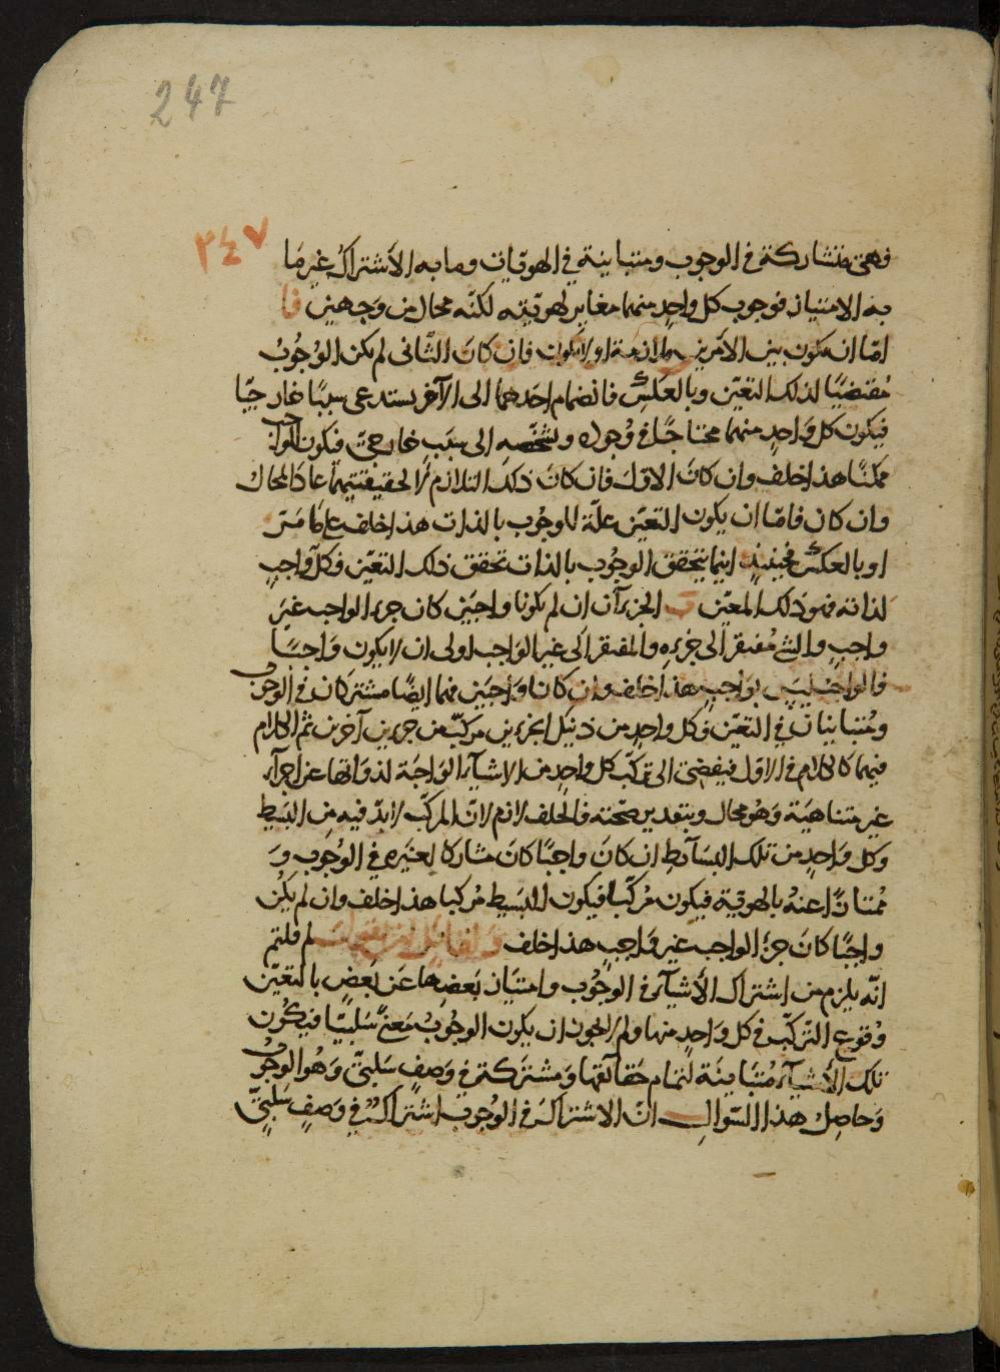 247
٢٤٧
فهى متشاركة فى الوجوب ومتباينة فى الهويّات وما به الأشتراك غير مَا
به الامتياز فوجوب كل واحدٍ منهما مغاير لهويّته لكنّه محال من وَجهين فا
امّا ان يكون بين الأمرين ملازمة اولا يكون فان كانَ الثّانى لم يكن الوُجُوبُ
مُقتضيًا لذلك التعيّن وبالعكس فانضمام احَدهما الى الآخر يستدعى سببًا خارجيّا
فيكون كل وَاحدٍ منهما محتاجًا فى وُجوده وتشخّصه الى سبَبٍ خارجىّ فيكون الواجب
ممكنًا هذا خلف وان كانَ الاوّل فان كانَ ذلك التلازم لا لحقيقتيهما عادَ المحال
وان كان فامّا ان يكون التعيّن علّة للوجُوب بالذات هذا خلف على مَا مَرّ
او بالعكس فحينئذٍ اينما يتحقق الوجُوب بالذات تحقق ذلك التعيّن فكل وَاجبٍ
لذاته فهو ذلك المعيّن ب الجزءآن ان لم يكونا واجبَين كان جزء الواجب غيرَ
واجبٍ والشئ مُفتقر الى جزءِه والمفتقر الى غير الوَاجب اولى ان لا يكون وَاجبًا
فالواجبُ ليسَ بوَاجبٍ هذا خلف وان كانا وَاجبَين فهما ايضًا مشتركان فى الوجوب
ومُتباينان فى التعيّن فكل واحدٍ من ذينك الجزءين مركّب من جزءين آخرين ثم الكلام
فيهما كالكلام فى الاوّل فيفضى الى تركّب كل واحدٍ من الاشيآء الوَاجبَة لذوَاتها عن اجزآء
غير متناهيَة وَهُو محال وبتقدير صحّته فالخلف لازم لانّ المركّب لابدّ فيه مِن البسَيط
وكل وَاحدٍ من تلك البسَآئطِ ان كانَ واجبًا كانَ مشاركا لغيَره فى الوُجوب وَ
مُمتازًا عنهُ بالهويّة فيكون مُركّبا فيكون البسَيط مُركبا هذا خلف وان لم يكُن
واجبًا كانَ جزءُ الواجب غير وَاجبٍ هذا خلف وَلقائل ان يقول لمَ قلتم
انّه يلزم من اشتراك الأشيآء فى الوجُوب وامتيَاز بَعضِها عَن بَعضٍ بالتعيّن
وُقوع التّركّب فى كل وَاحدٍ منها ولم لا يجوز ان يكون الوجُوبُ مَعنًى سَلبيّا فيكُون
تلك الأشيآء مُتبَاينَة بتمام حَقآئقها وَمشترَكة فى وَصفٍ سَلبىّ وَهُو الوجُوبُ
وَحاصِل هذا السّوال انّ الاشتراكَ فى الوُجوب اشتراكٌ فى وَصفٍ سَلبىّ